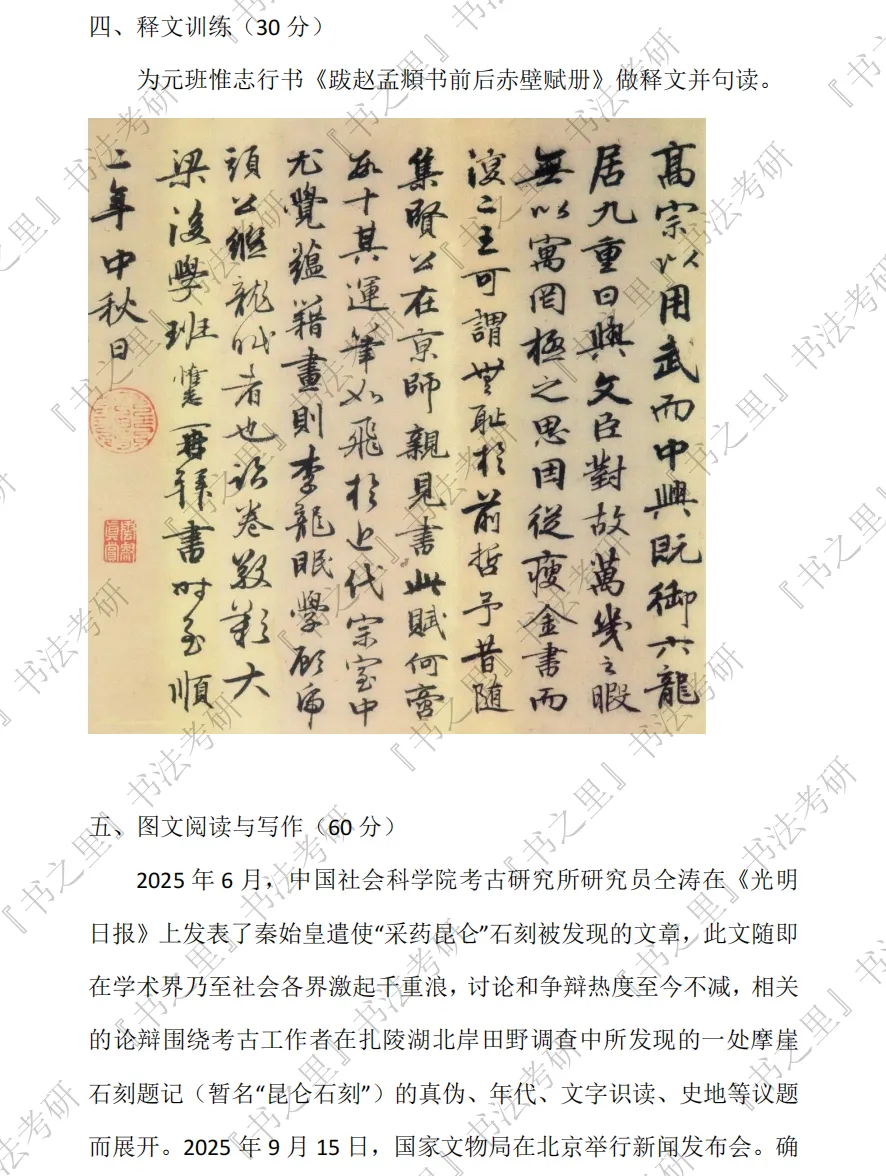 四、释文训练（30 分）
为元班惟志行书《跋赵孟頫书前后赤壁赋册》做释文并句读。
高宗以用武而中興既御六龍
居九重日與文臣對故萬幾之暇
無以寓罔極之思因從瘦金書而
復二王可謂無恥於前哲予昔隨
集賢公在京師親見書此賦何啻
數十其運筆如飛於近代宗室中
尤覺蘊籍畫則李龍眠學顧虎
頭公繼龍眠者也卷敬大
梁後學班惟志再拜書時至順
二年中秋日
五、图文阅读与写作（60 分）
2025 年 6 月，中国社会科学院考古研究所研究员仝涛在《光明
日报》上发表了秦始皇遣使“采药昆仑”石刻被发现的文章，此文随即
在学术界乃至社会各界激起千重浪，讨论和争辩热度至今不减，相关
的论辩围绕考古工作者在扎陵湖北岸田野调查中所发现的一处摩崖
石刻题记（暂名“昆仑石刻”）的真伪、年代、文字识读、史地等议题
而展开。2025 年 9 月 15 日，国家文物局在北京举行新闻发布会。确
『书之里』书法考研